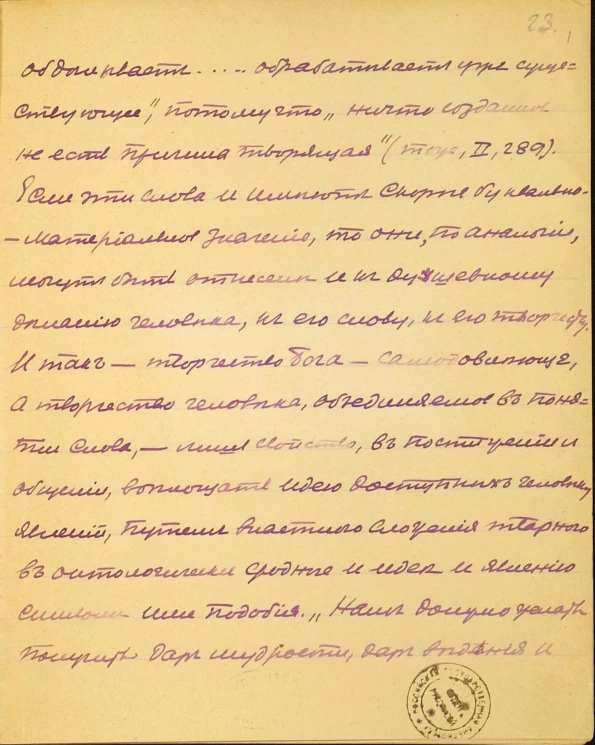 23.
обдѣлываетъ..... обрабатываетъ уже суще=
ствующее", потому что „ничто созданное
не есть причина творящая" (тоже, II, 289).
Если эти слова и имѣютъ скорѣе буквально-
-матеріальное значеніе, то они, по аналогіи,
могутъ быть отнесены и къ душевному
дѣланію человѣка, къ его слову, къ его творчеству.
И такъ — творчество Бога — самодовлѣюще,
а творчество человѣка, объединяемое въ поня=
тіи слова, — лишь свойство, въ постиженіи и
общеніи, воплощать идею доступныхъ человѣку
явленій, путемъ властного сложенія тварного
въ онтологически сродные и идеѣ и явленію
символы или подобія. „Намъ должно желать
получить даръ мудрости, даръ вѣдѣнія и